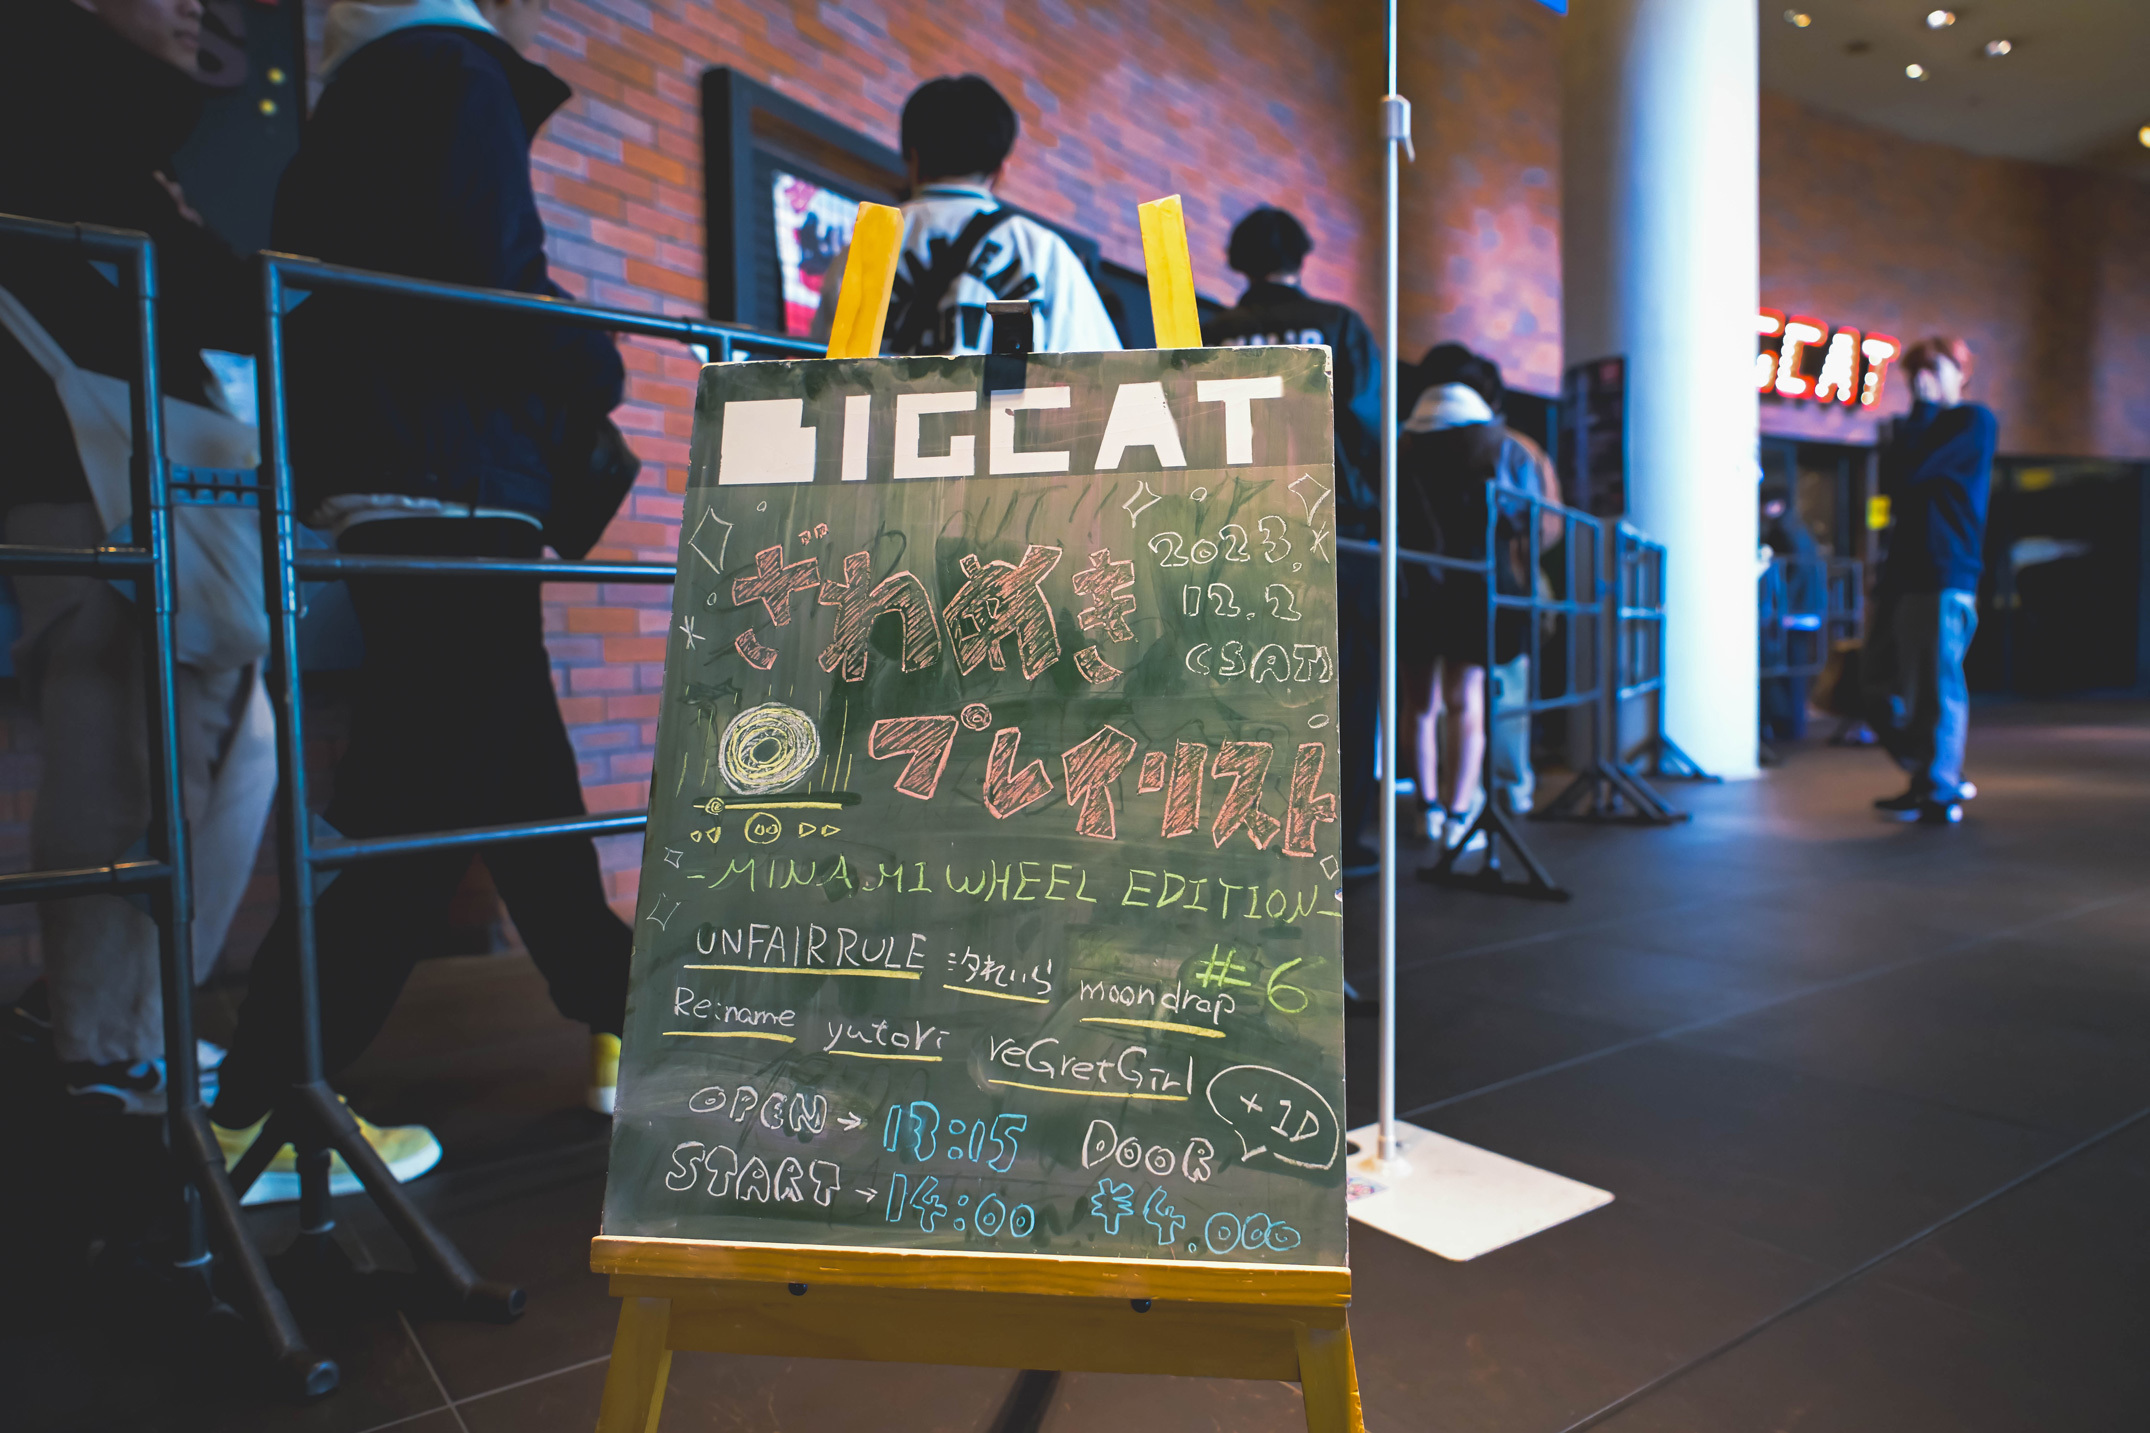 BIGCAT
ざわめき
2023.
12.2
(SAT)
プレイリスト
-MINAMI WHEEL EDITION-
#6
UNFAIR RULE 汐れいら moon drop
Re:name yutori reGretGirl
OPEN→13:15 DOOR +1D
START→14:00 ¥4.000
GCAT